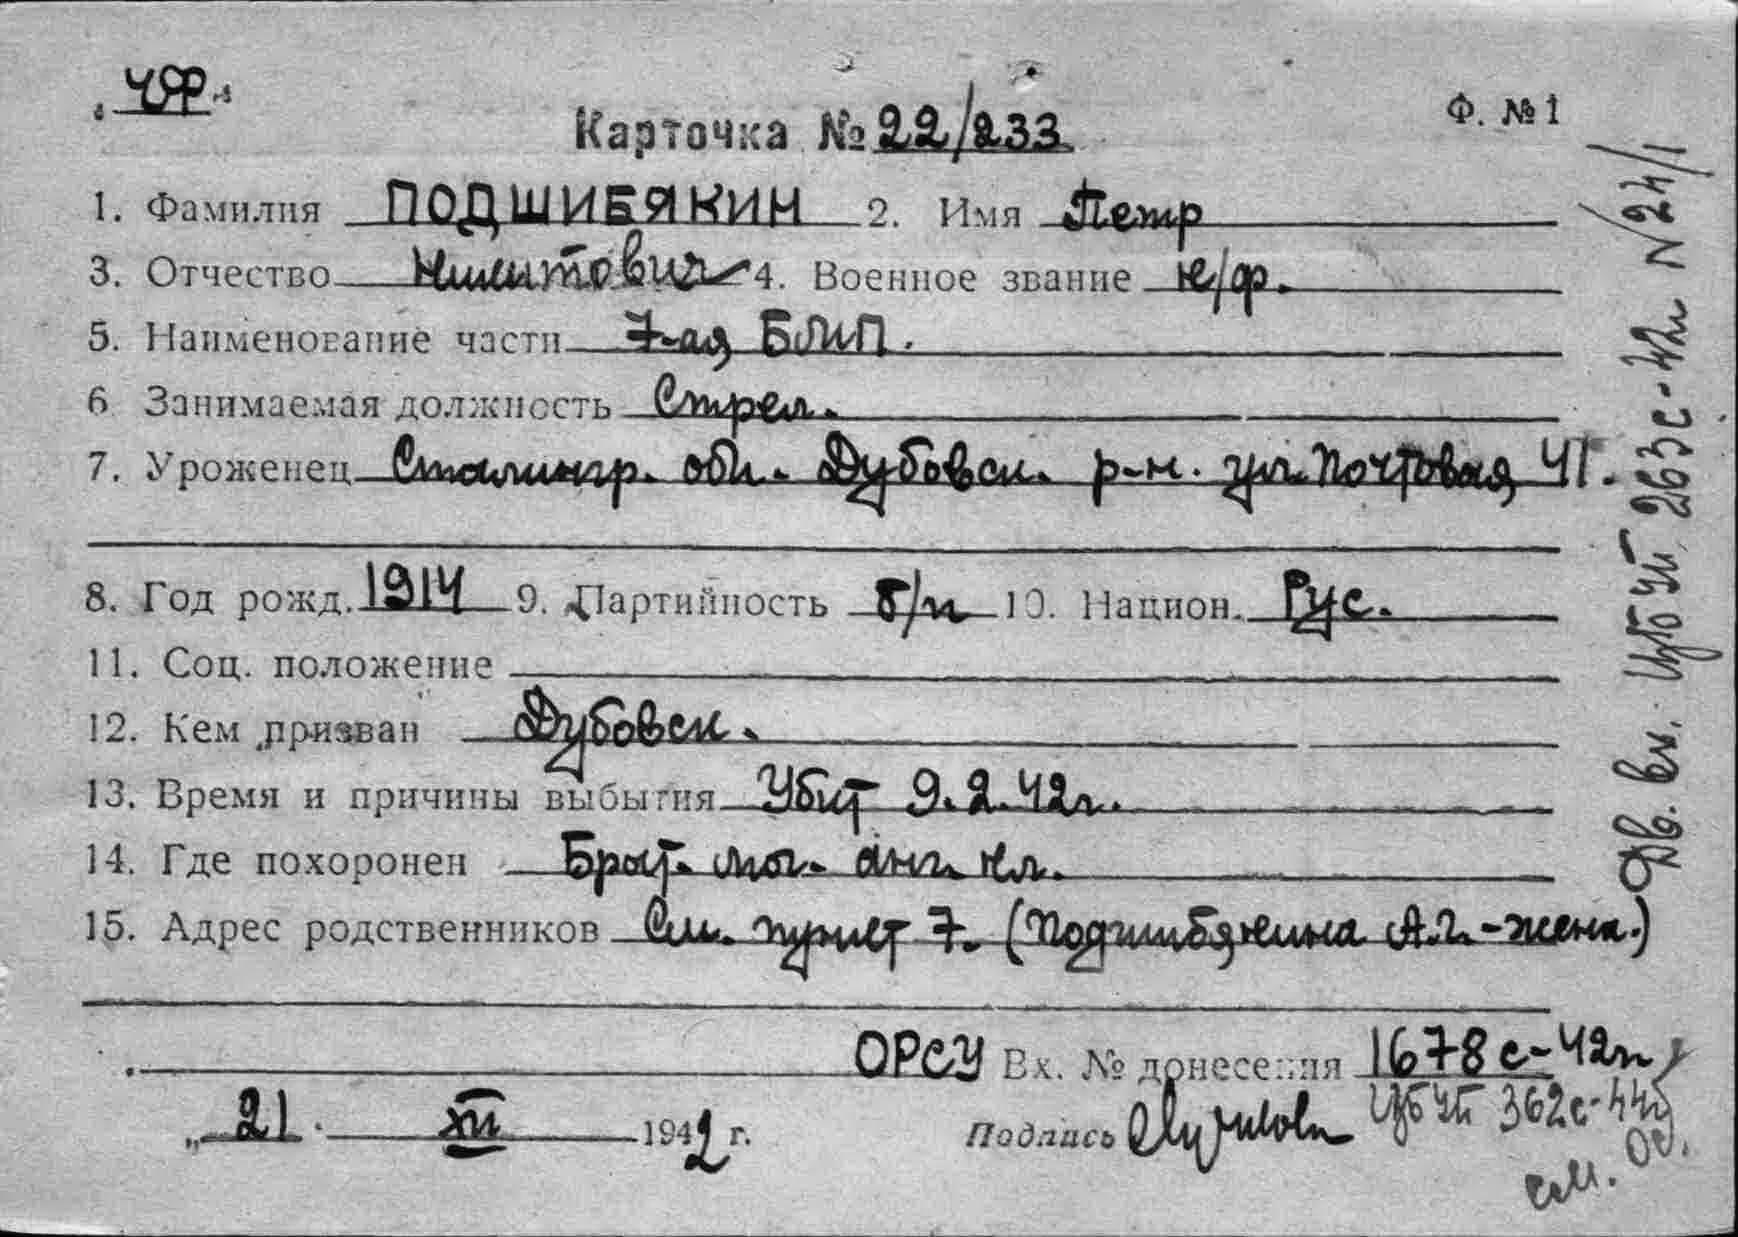 "ЧФ"
Ф. №1
Карточка № 22/233
1. Фамилия ПОДШИБЯКИН 2. Имя Петр
3. Отчество Никитович 4. Военное звание к/ф.
5. Наименование части 7-ая БМП.
6 Занимаемая должность Стрел.
7. Уроженец Сталингр. обл. Дубовск. р-н. ул. Почтовая, 41.
8. Год рожд. 1914 9. Партийность б/п 10. Национ. Рус.
11. Соц. положение
12. Кем призван Дубовск.
13. Время и причины выбытия Убит 9.2.42г.
14. Где похоронен Брат. мог. анг. кл.
15. Адрес родственников См. пункт 7. (Подшибякина А.Г. - жена.)
ОРСУ Вх. № донесения 1678с-42г.
ЦБУП 362с-44г
„21" XII 1942 г. Подпись
см. об.
Дв. вх. ЦБУП 263с-42г №24/1